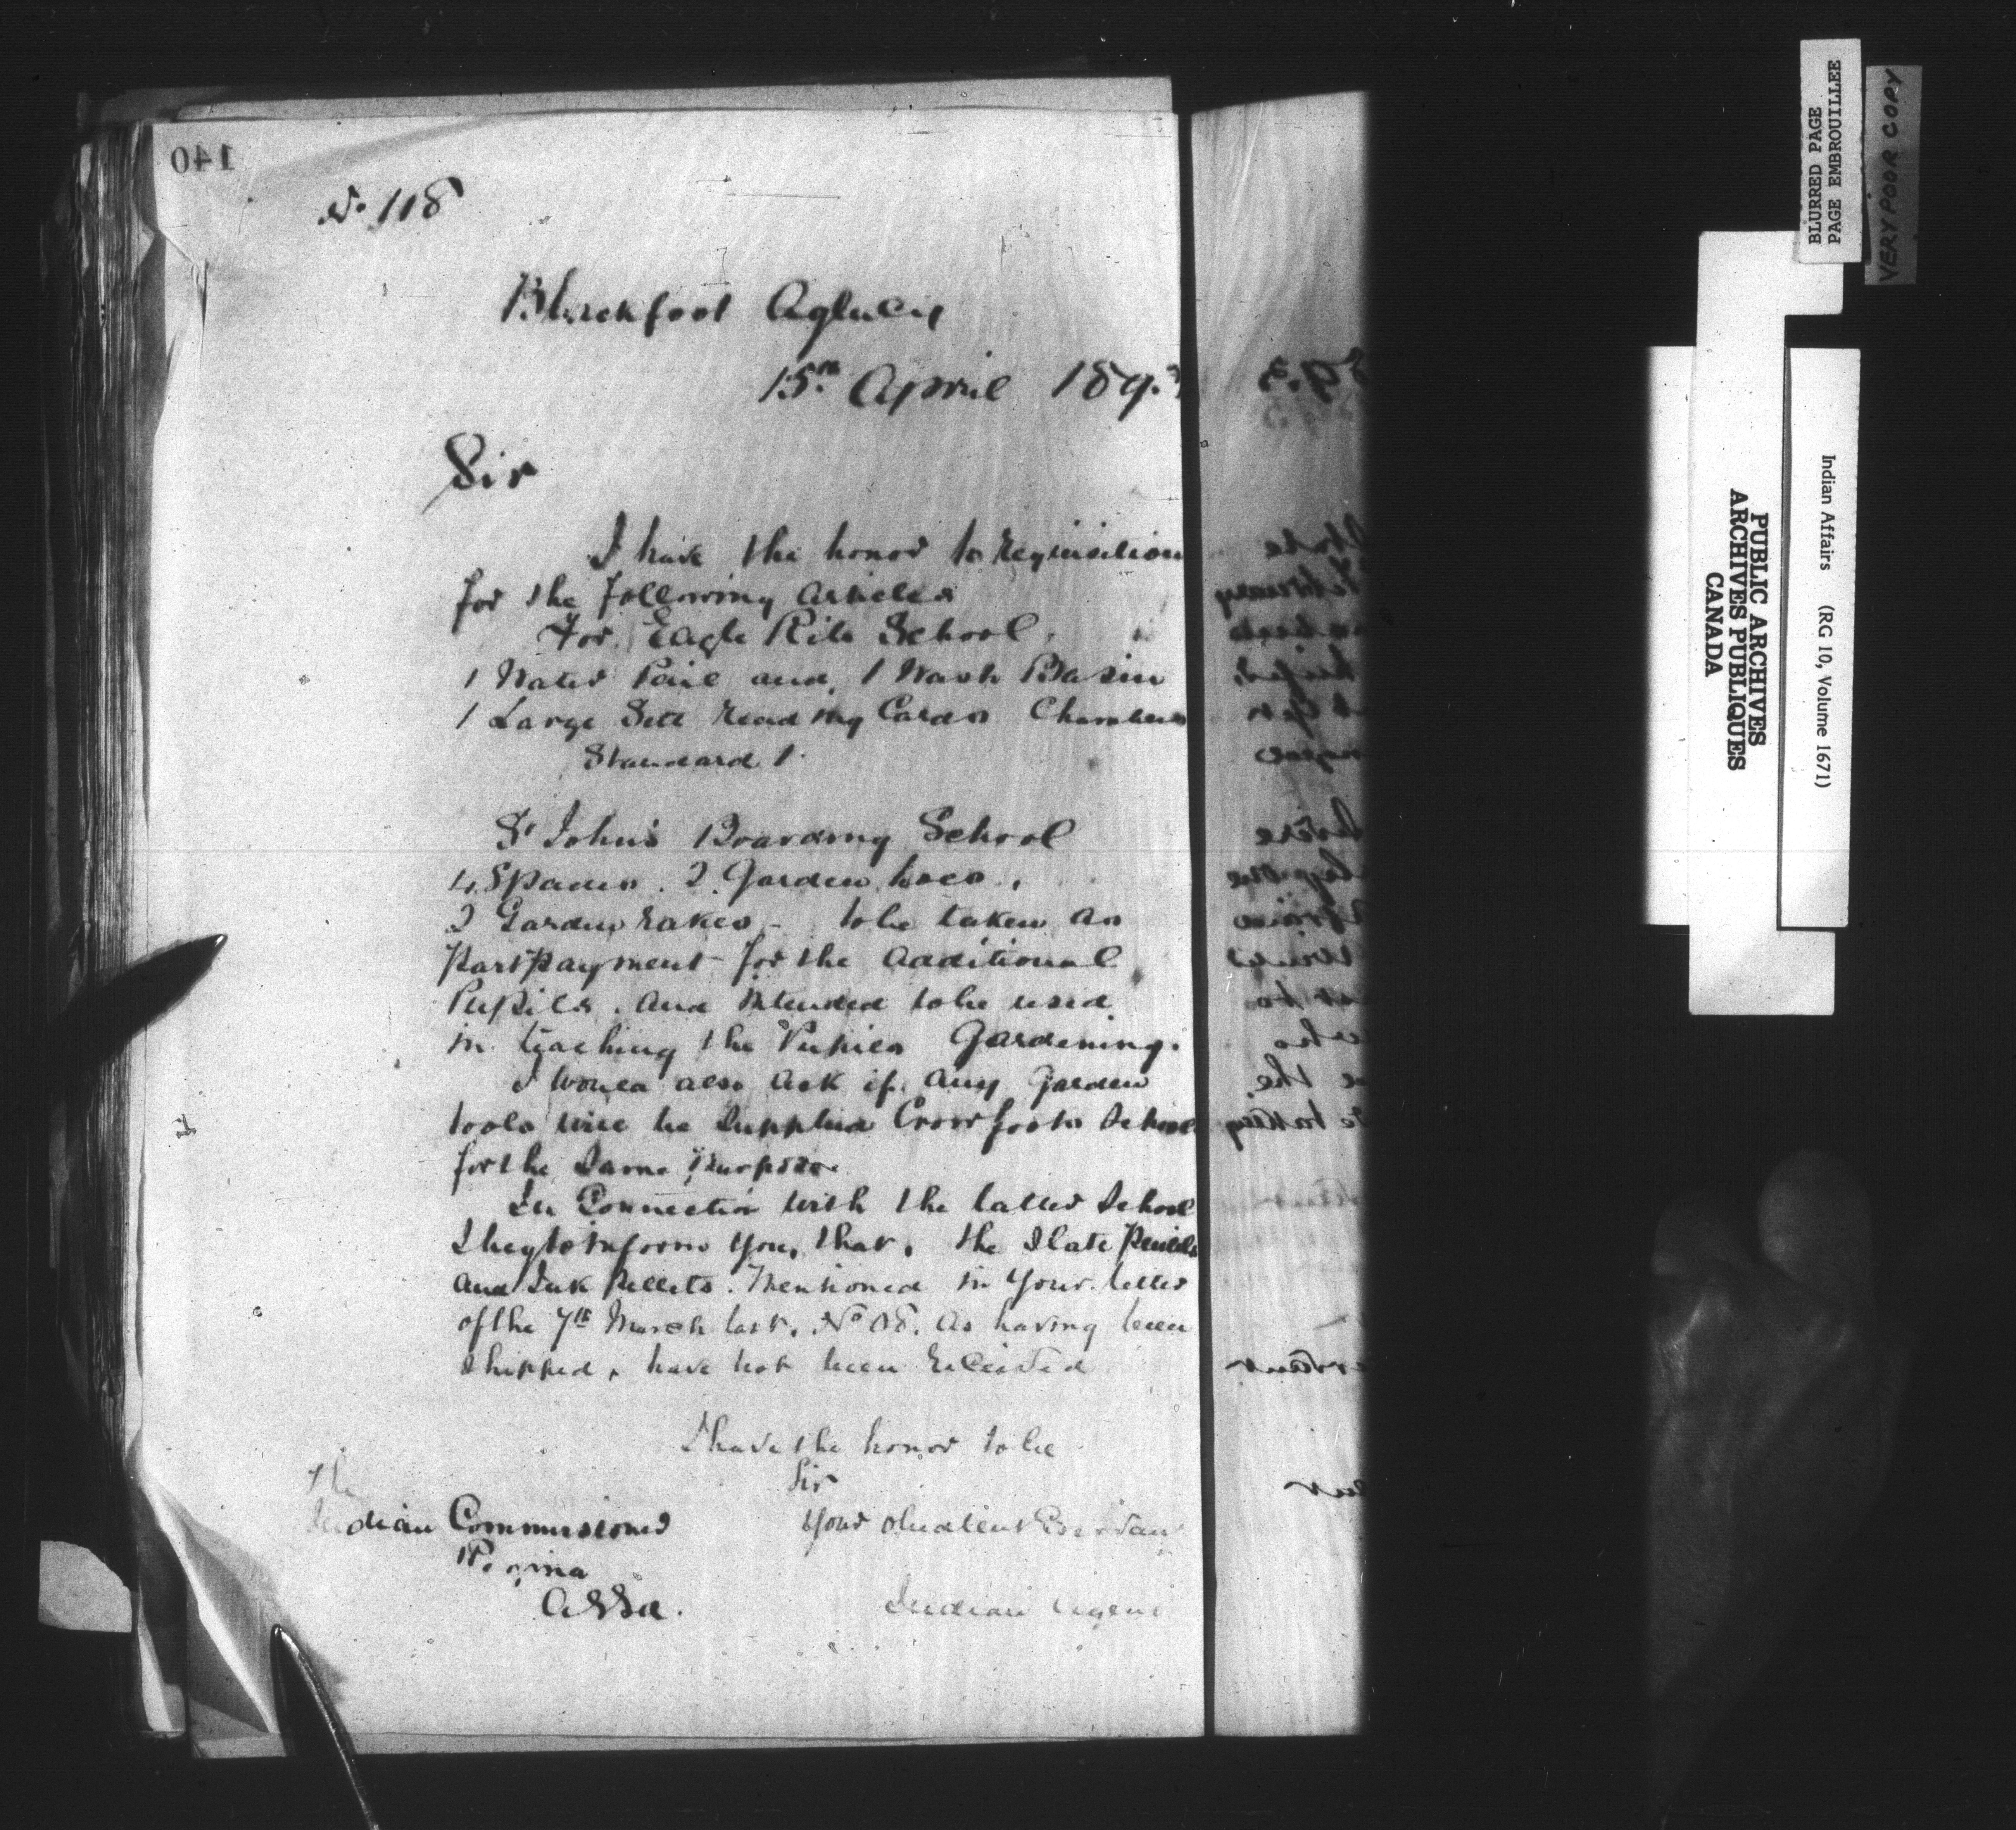 140
No. 118
Blackfoot Agency
15th April 189.3
Sir
I have the honor to requisition
for the following articles
For Eagle Ribs School.
1 Water Pail and 1 Wash Basin
1 Large Sett reading Cards Chambers
Standard 1.
St John's Boarding School
4 Spades. 2 Garden hoes.
2 Garden rakes - to be taken as
Part payment for the additional
Pupils. and intended to be used
in teaching the Pupils Gardening.
I would also ask if any Garden
tools will be supplied Crowfoots School
for the same purpose.
In Connection with the latter School
I beg to inform you, that, the Slate Pencils
and Ink Pellets. Mentioned in your letter
of the 7th March last. No as having been
shipped, have not been received
I have the honor to be
Sir
Your obedient Servant
The
Indian Commissioner
Regina
Assa.
Indian Agent
BLURRED PAGE
PAGE EMBROUILLEE
VERY POOR COPY
PUBLIC ARCHIVES
ARCHIVES PUBLIQUES
CANADA
Indian Affairs (RG 10, Volume 1671)